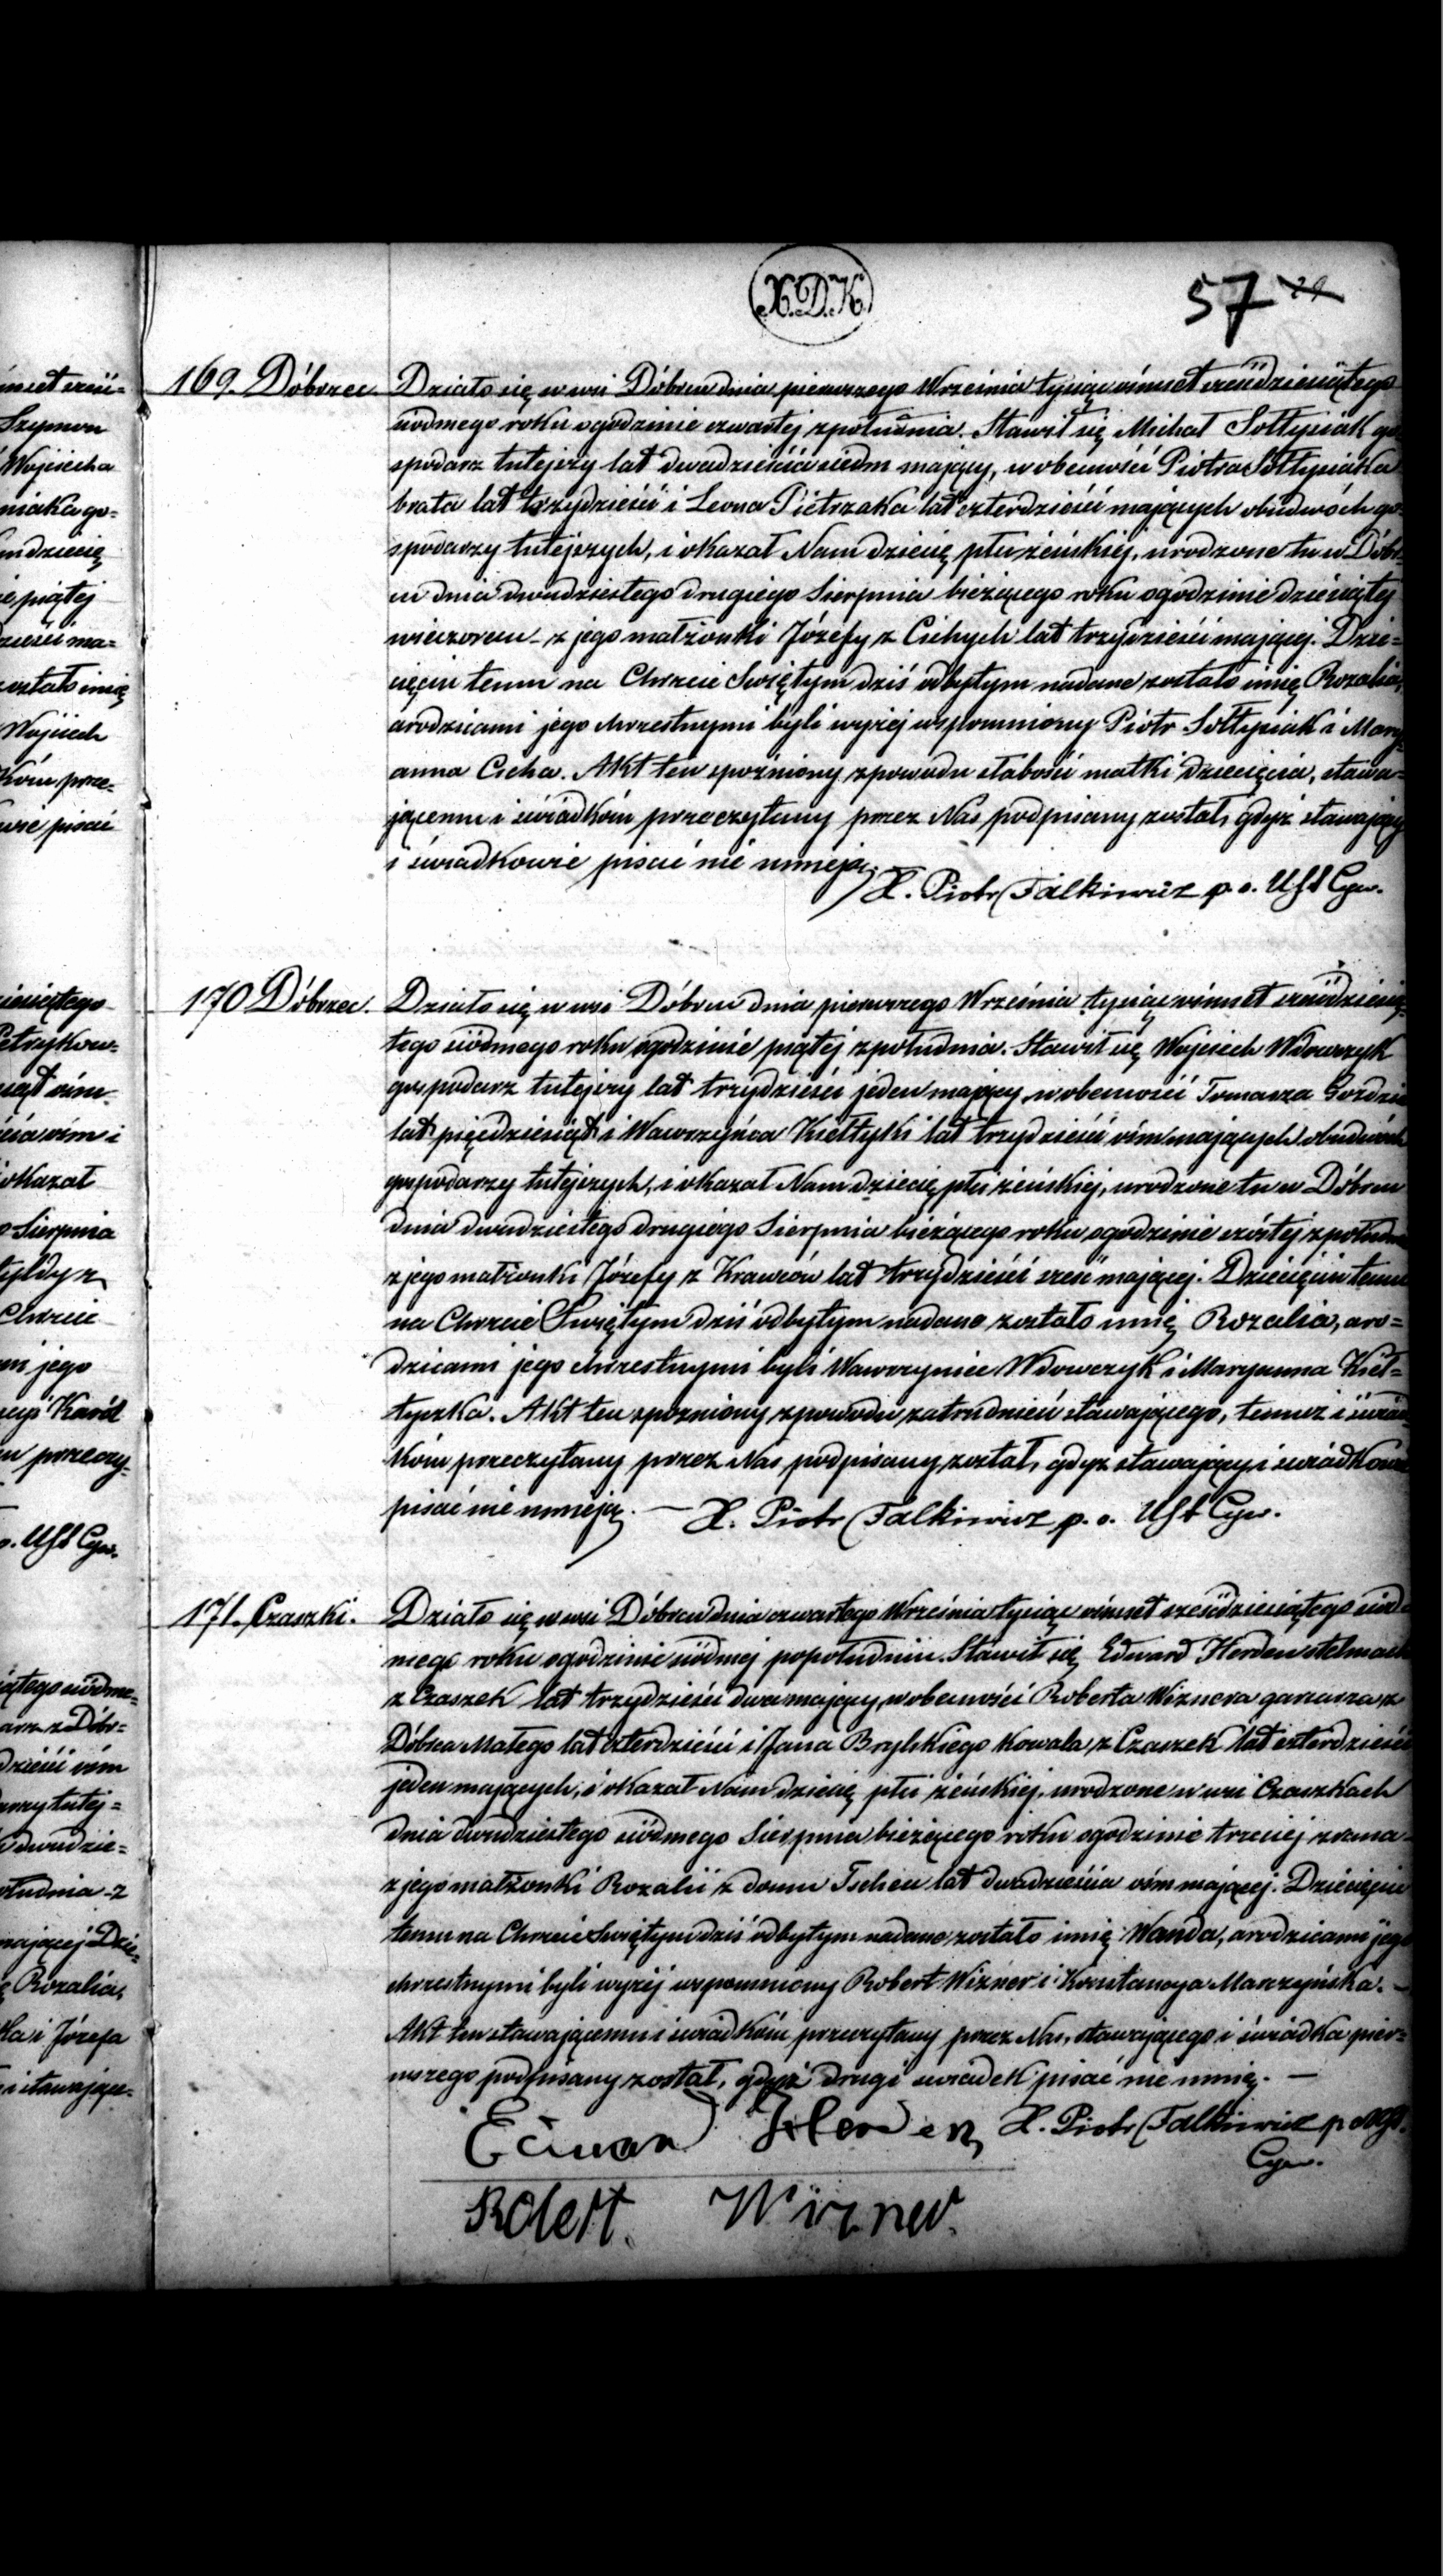 X.D.K.
57 29
169. Dóbrzec.
Działo się w wsi Dóbrcu dnia pierwszego Września tysiąc ośmset sześćdziesiątego
siódmego roku o godzinie czwartej z południa. Stawił się Michał Sołtysiak go-
spodarz tutejszy lat dwadzieścia siedm mający, w obecności Piotra Sołtysiaka
brata lat trzydzieści i Leona Pietrzaka lat czterdzieści mających obudwóch go-
spodarzy tutejszych, i okazał Nam dziecię płci żeńskiej, urodzone tu w Dóbr-
cu dnia dwudziestego drugiego Sierpnia bieżącego roku o godzinie dziesiątej
wieczorem – z jego małżonki Józefy z Cichych lat trzydzieści mającej. Dzie=
cięciu temu na Chrzcie Świętym dziś odbytym nadane zostało imię Rozalia,
a rodzicami jego chrzestnymi byli wyżej wspomniony Piotr Sołtysiak i Mary-
anna Cicha. Akt ten spóźniony z powodu słabości matki dziecięcia, stawa=
jącemu i świadkóm przeczytany przez Nas podpisany został, gdyż stawający
i świadkowie pisać nie umieją.
X. Piotr Falkiewicz p. o. U St Cyw.
170 Dóbrzec.
Działo się w wsi Dóbrcu dnia pierwszego Września tysiąc ośmset sześćdziesią-
tego siódmego roku o godzinie piątej z południa. Stawił się Wojciech Wdowczyk
gospodarz tutejszy lat trzydzieści jeden mający, w obecności Tomasza
lat pięćdziesiąt i Wawrzyńca Kiełtyki lat trzydzieści ośm mających obudwóch
gospodarzy tutejszych, i okazał Nam dziecię płci żeńskiej, urodzone tu w Dóbrcu
dnia dwudziestego drugiego Sierpnia bieżącego roku o godzinie szóstej z południa
z jego małżonki Józefy z Krawców lat trzydzieści sześć mającej. Dziecięciu temu
na Chrzcie Świętym dziś odbytym nadane zostało imię Rozalia, a ro=
dzicami jego chrzestnymi byli Wawrzyniec Wdowczyk i Maryanna Kieł=
tyczka. Akt ten spóźniony z powodu zatrudnień stawającego, temuż i świad
kóm przeczytany przez Nas podpisany został, gdyż stawający i świadkowie
pisać nie umieją. —
X. Piotr Falkiewicz p. o. U St Cyw.
171. Czaszki.
Działo się w wsi Dóbrcu dnia czwartego Września tysiąc ośmset sześćdziesiątego siód-
mego roku o godzinie siódmej popołudniu. Stawił się Edward Herden stelmach
z Czaszek lat trzydzieści dwa mający, w obecności Roberta Wiznera garcarza z
Dóbrca Małego lat czterdzieści i Jana Brylskiego Kowala z Czaszek lat czterdzieści
jeden mających, i okazał Nam dziecię płci żeńskiej, urodzone w wsi Czaszkach
dnia dwudziestego siódmego Sierpnia bieżącego roku o godzinie trzeciej z rana –
z jego małżonki Rozalii z domu Tschen lat dwadzieścia ośm mającej. Dziecięciu
temu na Chrzcie Świętym dziś odbytym nadane zostało imię Wanda, a rodzicami jego
chrzestnymi byli wyżej wspomniony Robert Wizner i Konstancya Marszyńska. –
Akt ten stawającemu i świadkóm przeczytany przez Nas, stawającego i świadka pier=
wszego podpisany został, gdyż drugi świadek pisać nie umie. —
Edward Herden
X. Piotr Falkiewicz p. o. U St.
Cyw.
Robert. Wizner.